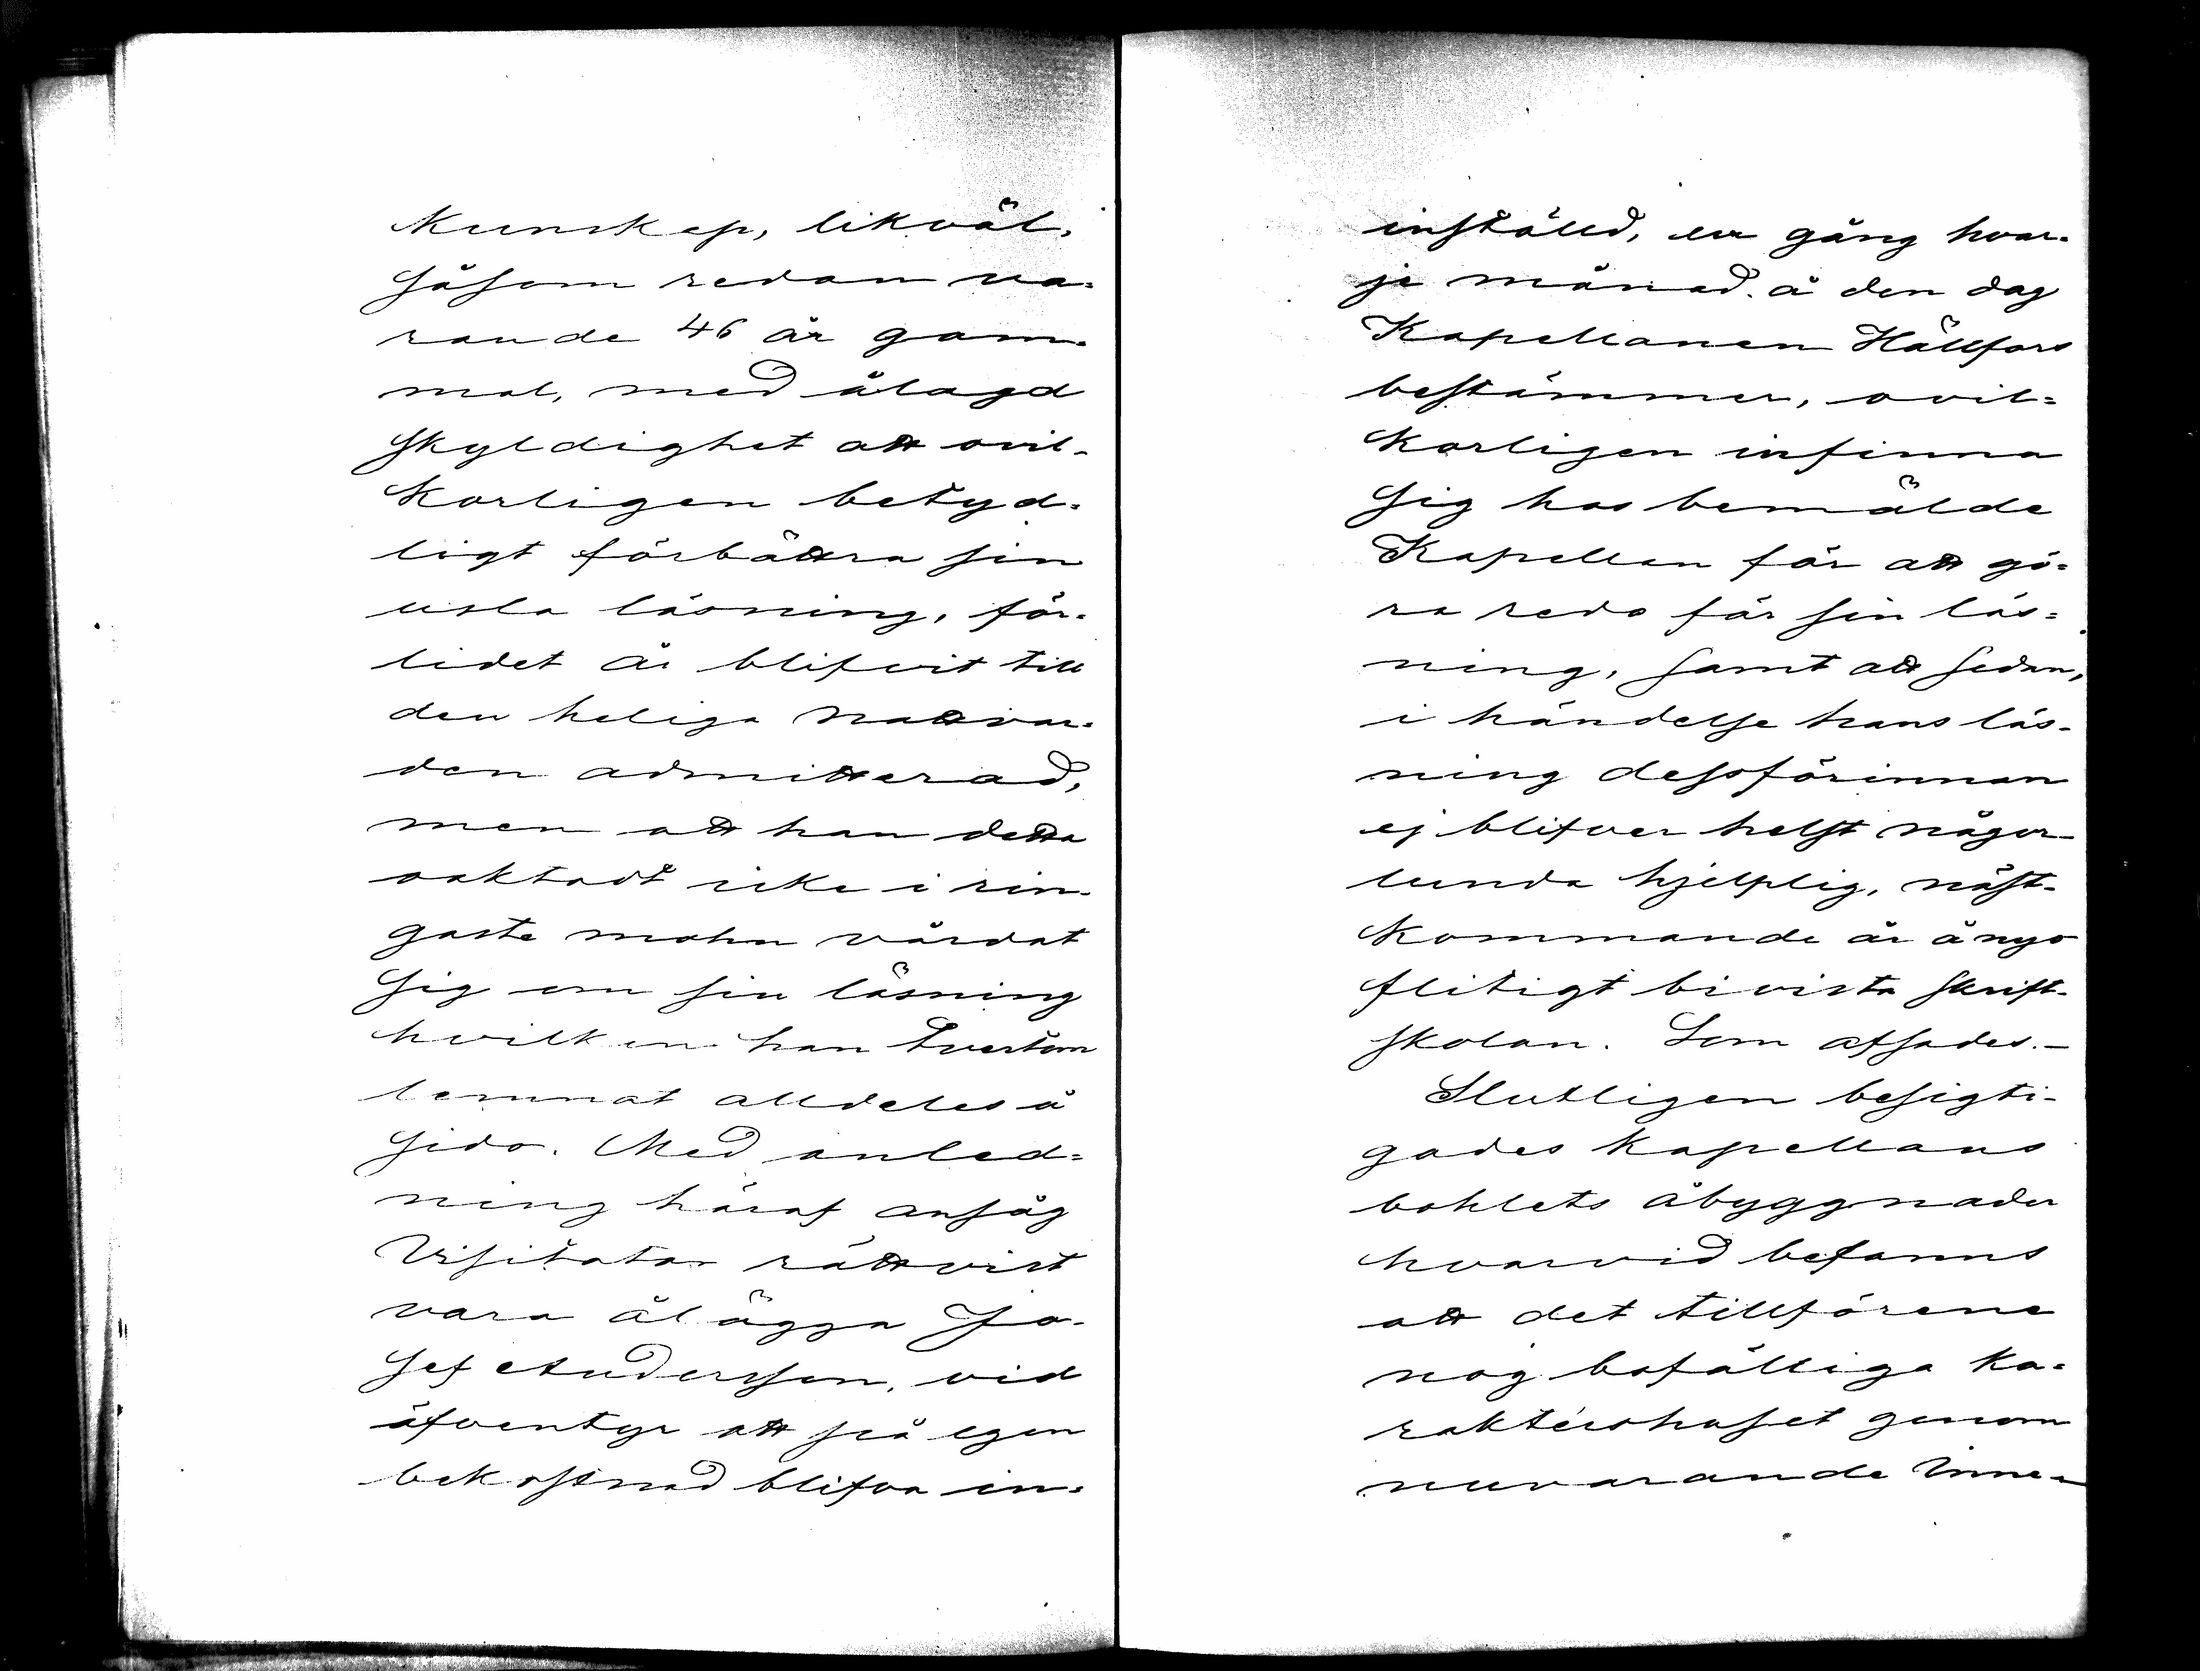 Kunskap, likväl,
såsom redan va=
rande 46 år gam=
mal, med ålagd
skyldighet att ovil-
korligen betyd=
ligt förbättra sin
usla läsning, för=
lidet år blifvit till
den heliga nattvar=
den admitterad,
men att han detta
oaktadt icke i rin-
gaste mohn vårdat
sig om sin läsning
hvilken han tvertom
lemnat alldeles å
sido. Med anled=
ning häraf ansåg
Visitator rättvist
vara ålägga Jo-
sef Andersson, vid
äfventyr att på egen
bekostnad blifva in=
ställd, en gång hvar=
je månad. å den dag
Kapellanen Hällfors
bestämmer, ovil=
korligen infinna
sig hos bemälde
Kapellan för att gö=
ra redo för sin läs=
ning, samt att sedan,
i händelse hans läs-
ning dessförinnan
ej blifver helst någor-
lunda hjelplig, näst-
kommande år å nyo
flitigt bivista skrift-
skolan. Som afsades.-
Slutligen besigti-
gades Kapellans
bohlets åbyggnader
hvarvid befanns
att det tillförene
nog bofälliga ka=
raktershuset genom
nuvarande Inne-